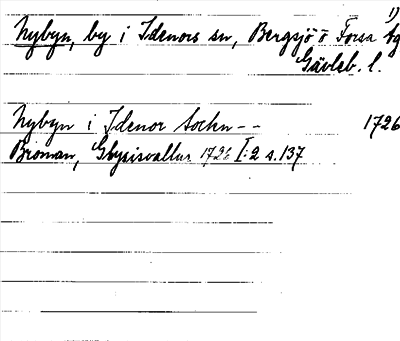 1)
Nybyn, by i Idenors sn, Bergsjö o Forsa tg
Gävleb. l.
Nybyn i Idenor Sockn -- 1726
Broman, Glysisvallur 1726 I:2 s. 137